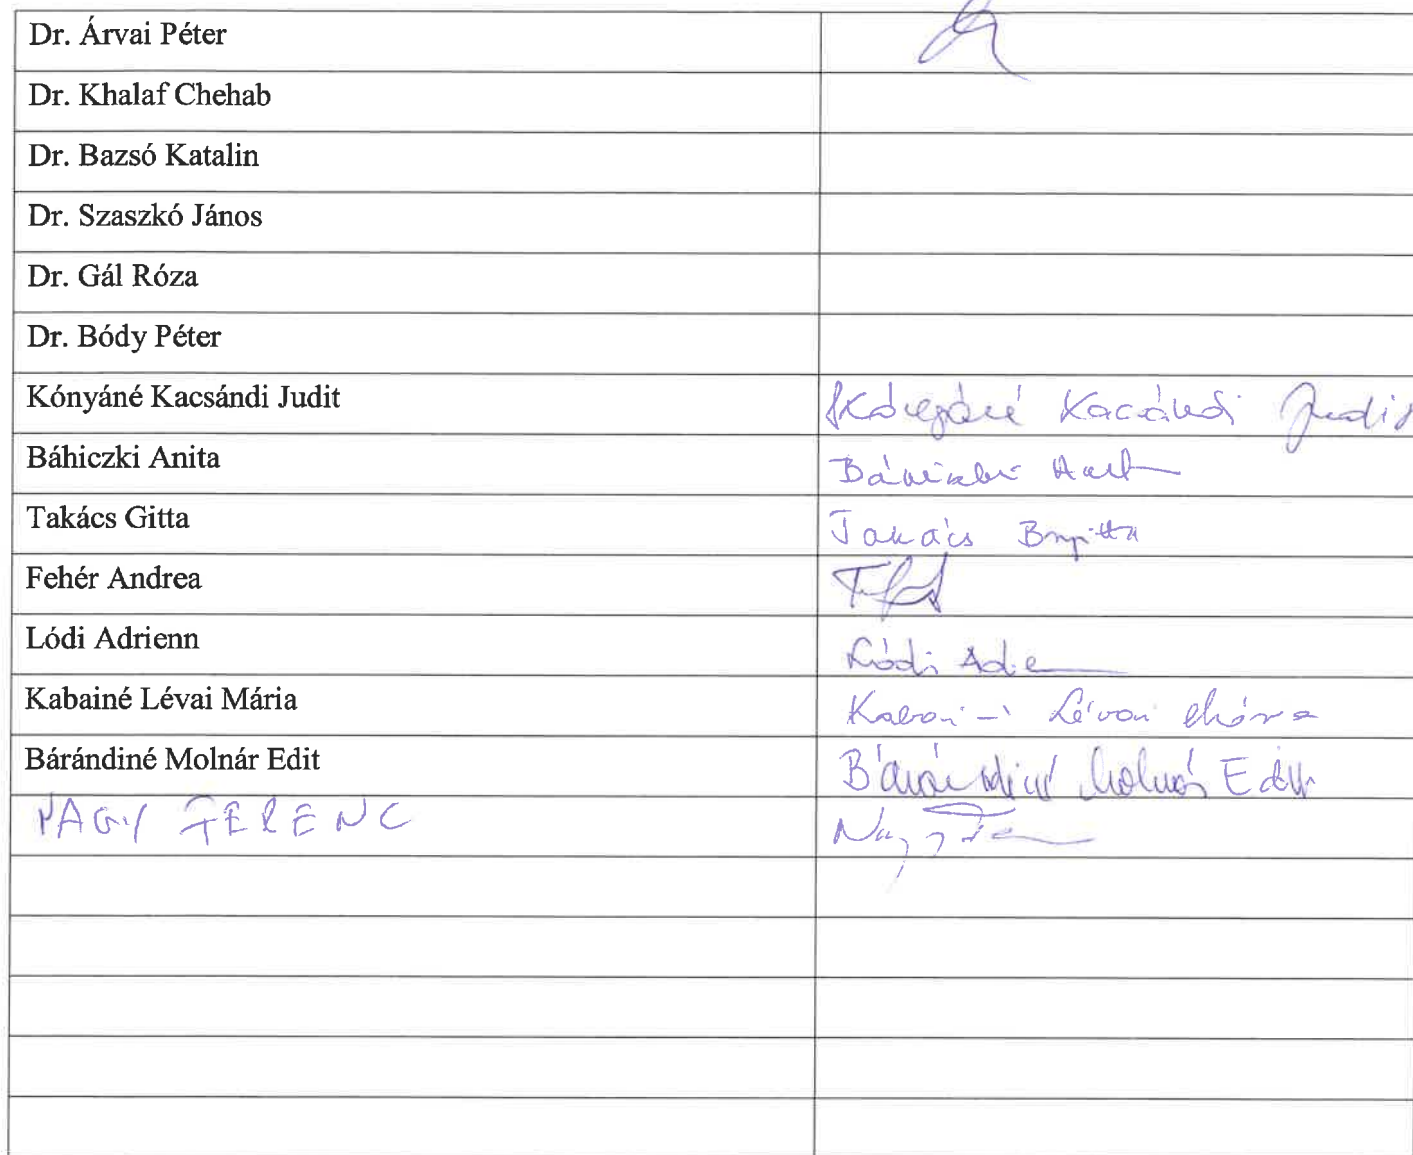 Dr. Árvai Péter
Dr. Khalaf Chehab
Dr. Bazsó Katalin
Dr. Szaszkó János
Dr. Gál Róza
Dr. Bódy Péter
Kónyáné Kacsándi Judit Kónyáné Kacsándi Judit
Báhiczki Anita
Takács Gitta Takács Brigitta
Fehér Andrea
Lódi Adrienn Lódi
Kabainé Lévai Mária Lévai Mária
Bárándiné Molnár Edit Bárándiné Molnár Edit
NAGY FERENC Nagy